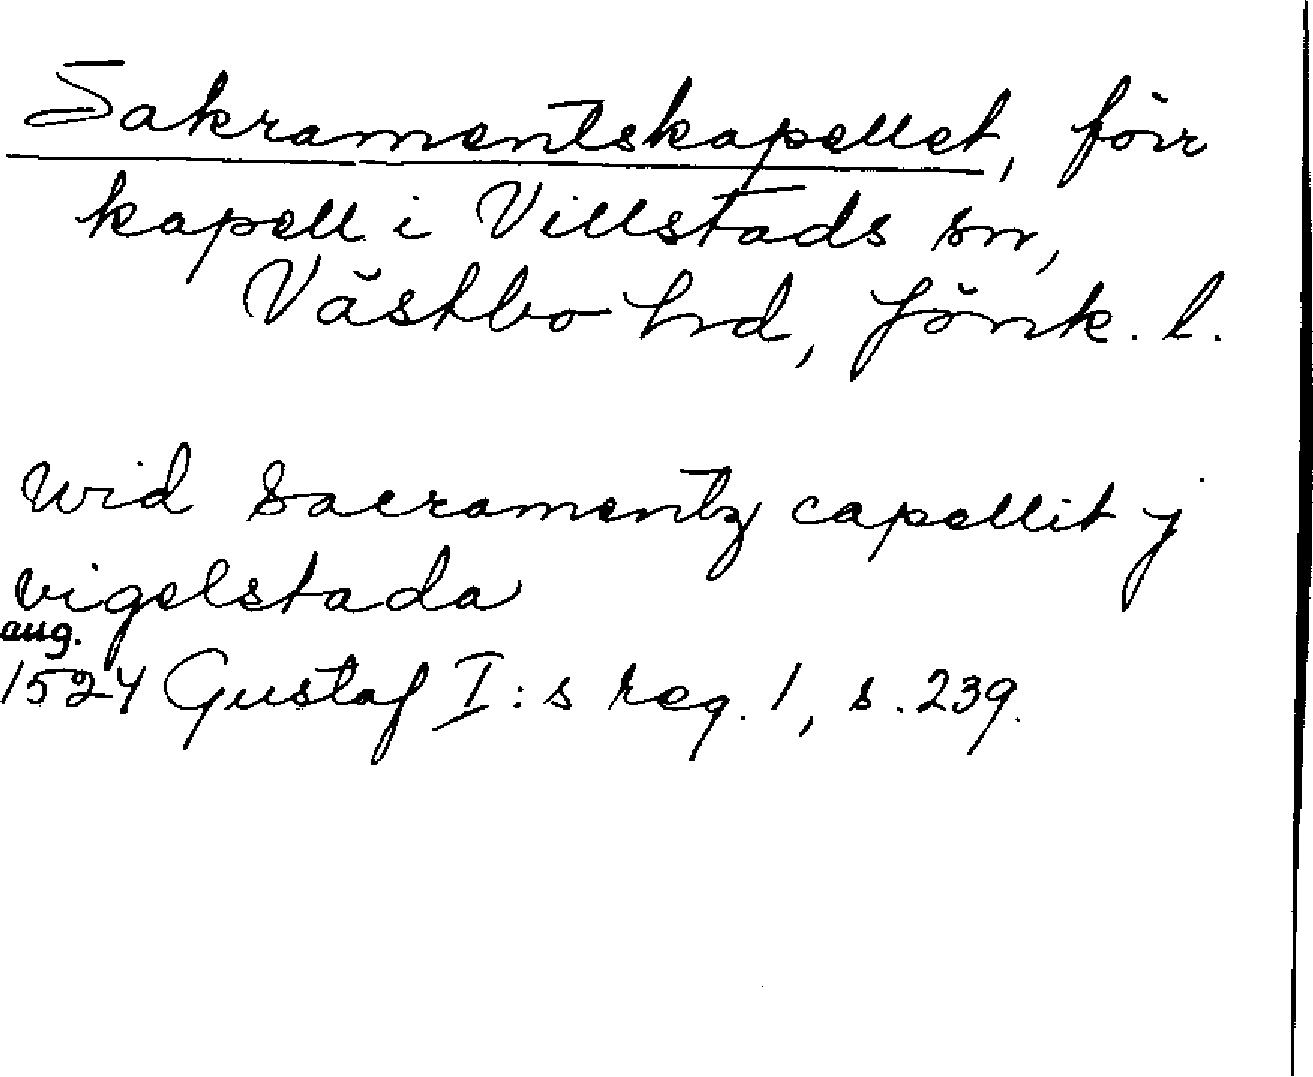 Sakramentskapellet, förr
kapell i Villstads sn,
Västbo hd, Jönk. l.
Wid Sacramentz capellit j
vigelstada
aug.
1524 Gustaf I:s reg. 1, s. 239.